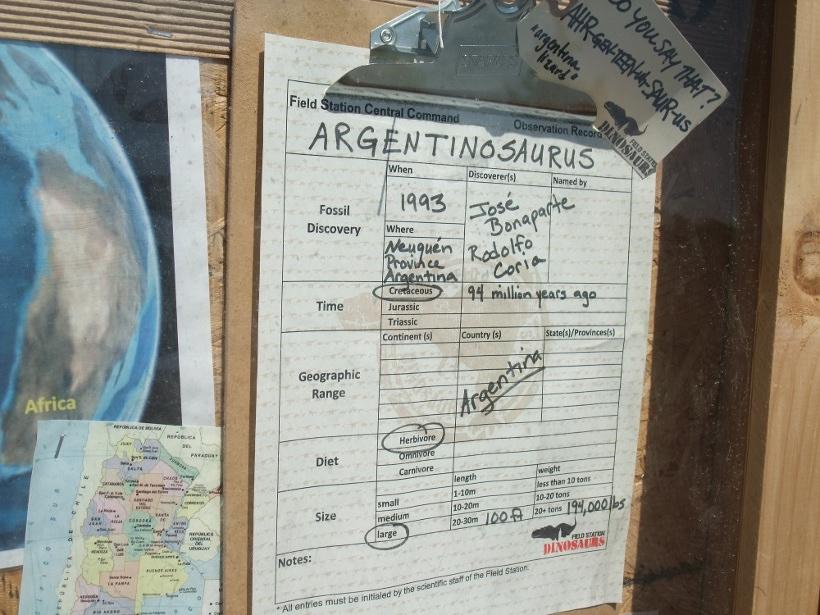 DO YOU SAY THAT?
AHR-gen-TEEN-uh-SAUR-us
"argentina
lizard"
FIELD STATION
DINOSAURS
Field Station Central Command
Observation Record
ARGENTINOSAURUS
Fossil
Discovery
When
Discoverer(s)
Named by
1993
José
Bonaparte
Rodolfo
Coria
Where
Neuquén
Province
Argentina
Time
Cretaceous
94 million years ago
Jurassic
Triassic
Geographic
Range
Continent (s)
Country (s)
State(s)/Provinces(s)
Argentina
Diet
Herbivore
Omnivore
Carnivore
Size
small
medium
large
length
1-10m
10-20m
20-30m 100 ft
weight
less than 10 tons
10-20 tons
20+ tons 194,000 lbs
FIELD STATION
DINOSAURS
Notes:
* All entries must be initialed by the scientific staff of the Field Station.
Africa
REPÚBLICA DE BOLIVIA
REPÚBLICA
DEL
PARAGUAY
SALTA
CÓRDOBA
BUENOS AIRES
LA PAMPA
REPÚBLICA
ORIENTAL
DEL
URUGUAY